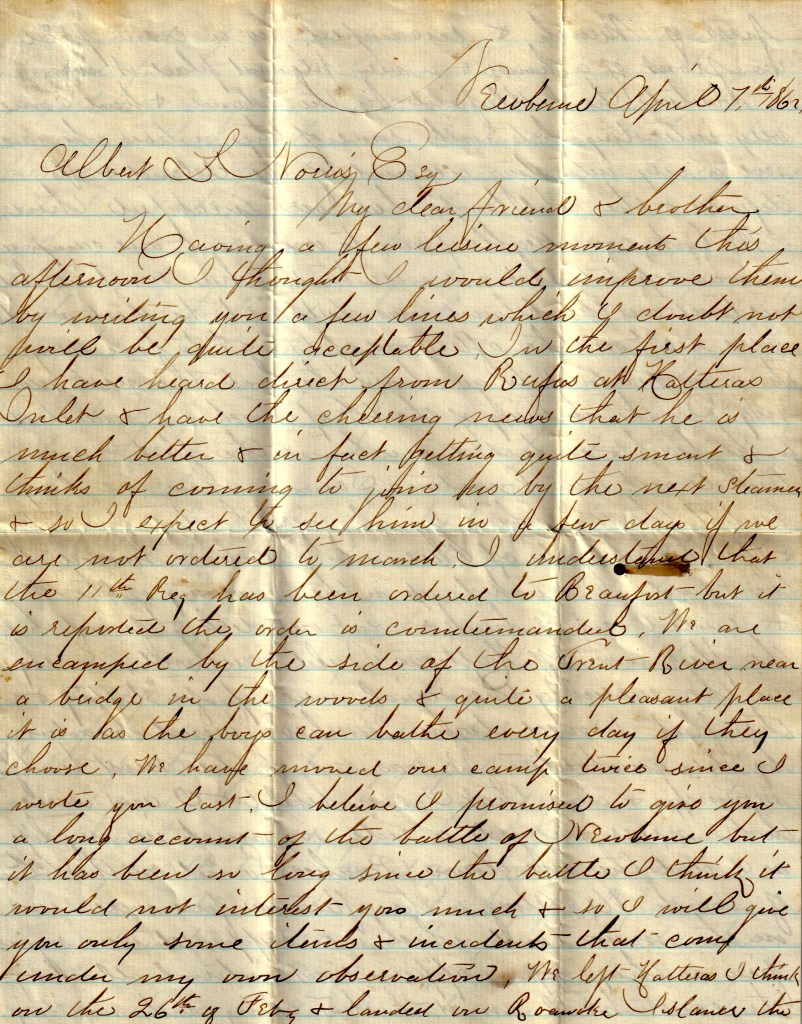 Newberne April 7th 1862,
Albert L Norris, Esq
My dear friend & brother
Having a few leisure moments this
afternoon I thought I would improve them
by writing you a few lines which I doubt not
will be quite acceptable. In the first place
I have heard direct from Rufus at Hatteras
Inlet & have the cheering news that he is
much better & in fact getting quite smart &
thinks of coming to join us by the next steamer
& so I expect to see him in a few days if we
are not ordered to march. I understand that
the 11th Reg has been ordered to Beaufort but it
is reported the order is countermanded. We are
encamped by the side of the Trent River near
a bridge in the woods & quite a pleasant place
it is as the boys can bathe every day if they
choose. We have moved our camp twice since I
wrote you last. I beleive I promised to give you
a long account of the battle of Newberne but
it has been so long since the battle I think it
would not interest you much & so I will give
you only some items & incidents that come
under my own observation. We left Hatteras I think
on the 26th of Feby & landed on Roanoke Island the